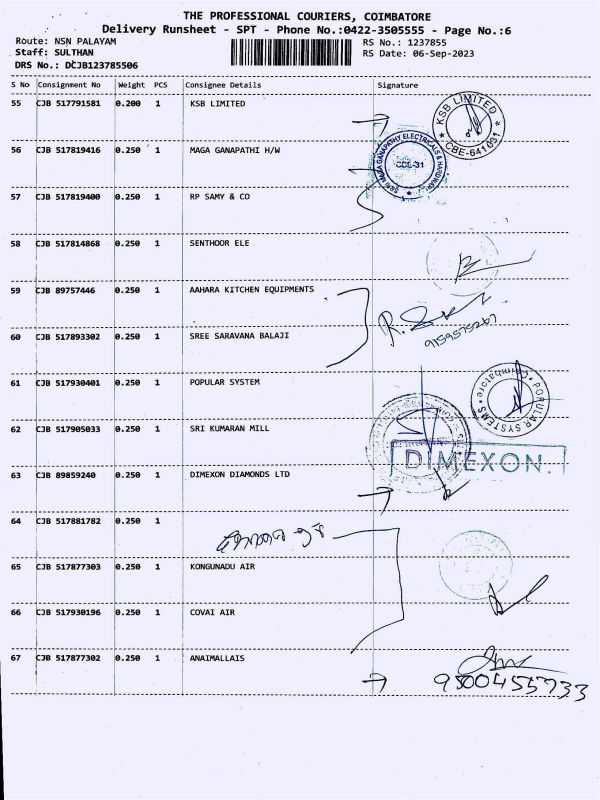 THE PROFESSIONAL COURIERS, COIMBATORE
Delivery Runsheet - SPT - Phone No.:0422-3505555 - Page No.:6
Route: NSN PALAYAM RS No.: 1237855
Staff: SULTHAN RS Date: 06-Sep-2023
DRS No.: DCJB123785506
S No Consignment No Weight PCS Consignee Details Signature
55 CJB 517791581 0.200 1 KSB LIMITED
KSB LIMITED * CBE-641031 *
56 CJB 517819416 0.250 1 MAGA GANAPATHI H/W
SRI MAGA GANAPATHY ELECTRICALS & HARDWARE
CBE-31
57 CJB 517819400 0.250 1 RP SAMY & CO
58 CJB 517814868 0.250 1 SENTHOOR ELE
59 CJB 89757446 0.250 1 AAHARA KITCHEN EQUIPMENTS
60 CJB 517893302 0.250 1 SREE SARAVANA BALAJI
61 CJB 517930401 0.250 1 POPULAR SYSTEM
* POPULAR SYSTEMS * Coimbatore
62 CJB 517905033 0.250 1 SRI KUMARAN MILL
DIMEXON.
63 CJB 89859240 0.250 1 DIMEXON DIAMONDS LTD
64 CJB 517881782 0.250 1
65 CJB 517877303 0.250 1 KONGUNADU AIR
66 CJB 517930196 0.250 1 COVAI AIR
67 CJB 517877302 0.250 1 ANAIMALLAIS
9500455733